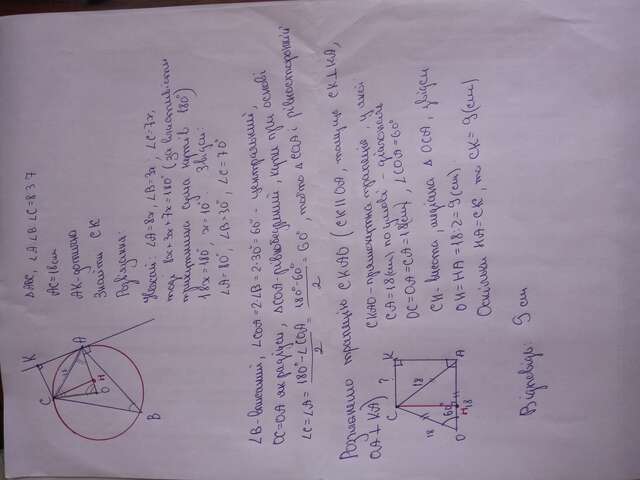 △ABC, ∠A ∠B ∠C = 8 3 7
AC = 18 см
AK - дотична
Знайти CK
Розв'язання:
Нехай: ∠A = 8x, ∠B = 3x, ∠C = 7x,
тоді 8x + 3x + 7x = 180° (за властивістю
трикутника сума кутів 180°)
18x = 180°, x = 10° Звідси:
∠A = 80°, ∠B = 30°, ∠C = 70°
∠B - вписаний, ∠COA = 2∠B = 2·30° = 60° - центральний,
OC = OA як радіуси, △COA рівнобедрений, кути при основі
∠C = ∠A = 180° - ∠COA / 2 = 180° - 60° / 2 = 60°, тобто △COA є рівносторонній
Розглянемо трапецію CKAO (CK || OA, тому що CK ⊥ KA,
OA ⊥ KA)
CKAO - прямокутна трапеція, у якої
CA = 18 (см) по умові - діагональ
OC = OA = CA = 18 (см), ∠COA = 60°
CH - висота, медіана △ OCA, звідси
OH = HA = 18:2 = 9 (см).
Оскільки HA = CK, то CK = 9 (см)
Відповідь: 9 см
C
K
A
B
O
H
C
?
K
18
18
60°
O
H
18
A